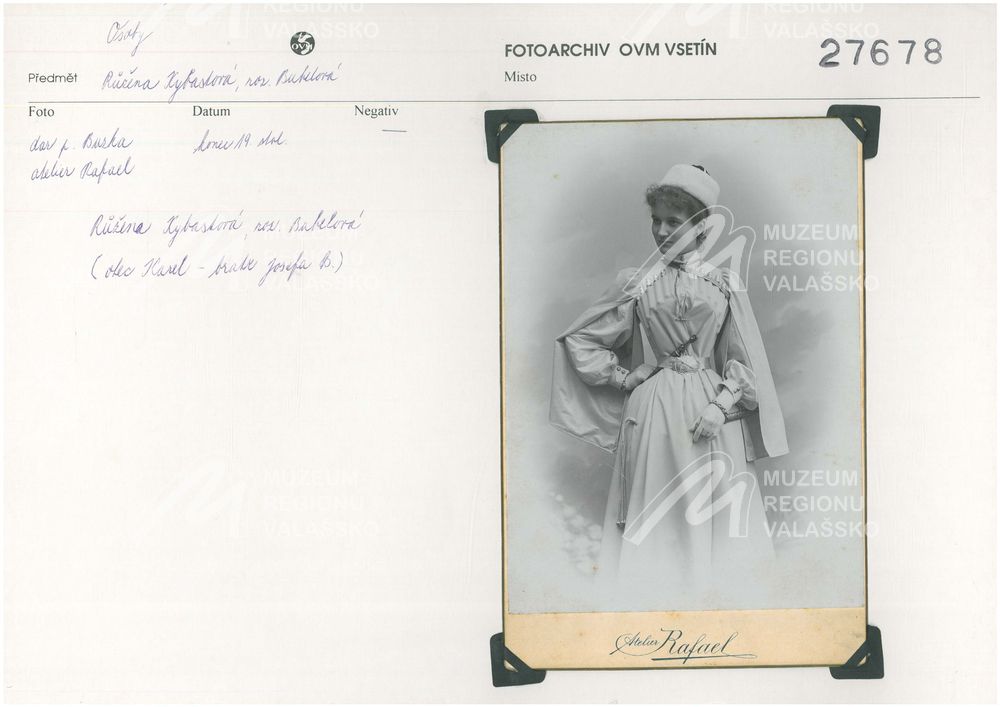 Osoby
OVM
FOTOARCHIV OVM VSETÍN
27678
Předmět Růžena Kybastová, roz. Bubelová
Místo
Foto Datum Negativ
dar p. Buska konec 19. stol. —
atelier Rafael
Růžena Kybastová, roz. Bubelová
(otec Karel - bratr Josefa B.)
Atelier Rafael
MUZEUM
REGIONU
VALAŠSKO
MUZEUM
REGIONU
VALAŠSKO
MUZEUM
REGIONU
VALAŠSKO
REGIONU
VALAŠSKO
REGIONU
VALAŠSKO